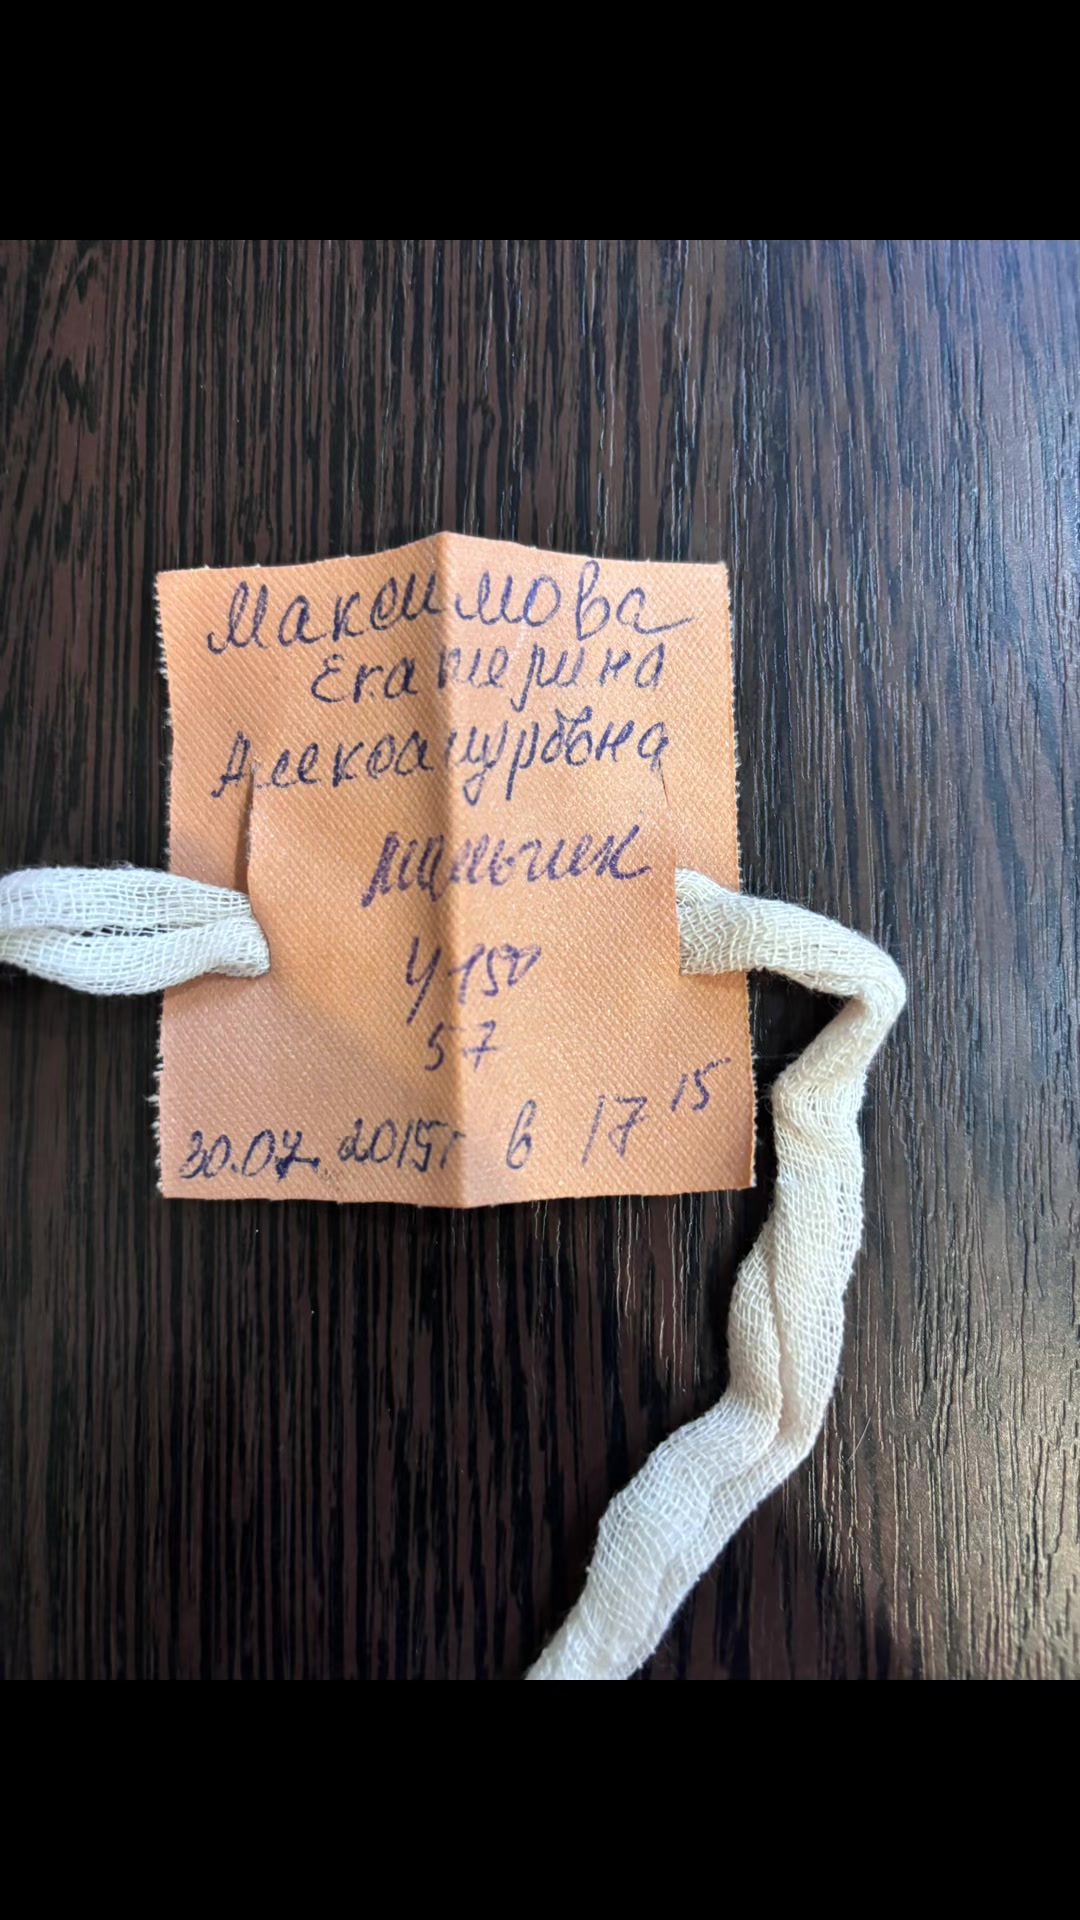 Максимова
Екатерина
Александровна
мальчик
4150
57
30.07.2015г в 17 15